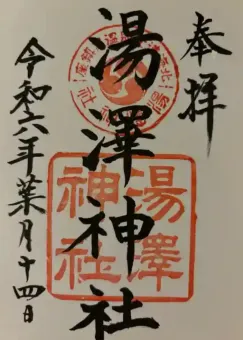 奉拝
湯澤神社
湯澤
神社
令和六年葉月十四日